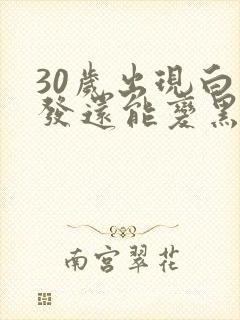 30歲出現白
發還能變黑
南宮翠花